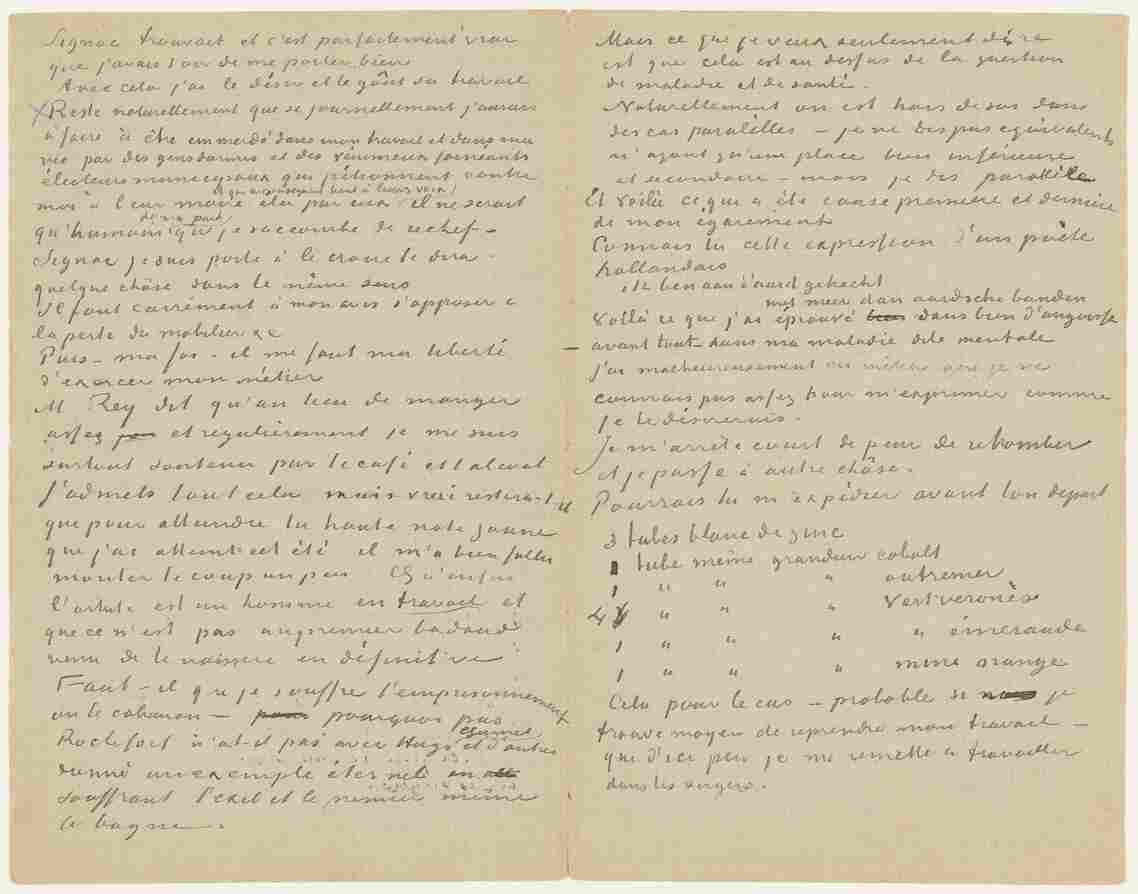 Signac trouvait et c'est parfaitement vrai
que j'avais l'air de me porter bien
Avec cela j'ai le désir et le goût du travail
X Reste naturellement que si journellement j'aurais
à faire à être emmerdé dans mon travail et dans ma
vie par des gendarmes et des venimeux faineants
électeurs municipaux qui pétitionnent contre
moi à leur maire élu par eux et qui conséquemment tient à leurs voix il ne serait
qu'humain de ma part que je succombe de rechef –
Signac je suis porté à le croire te dira
quelque chôse dans le même sens
Il faut carrément à mon avis s'opposer à
la perte du mobilier &c
Puis – ma foi – il me faut ma liberté
d'exercer mon métier
M. Rey dit qu'au lieu de manger
assez et régulièrement je me suis
surtout soutenu par le café et l'alcool
J'admets tout cela mais vrai restera-t-il
que pour atteindre la haute note jaune
que j'ai atteint cet été il m'a bien fallu
monter le coup un peu. Qu'enfin
l'artiste est un homme en travail et
que ce n'est pas au premier badaud
venu de le vaincre en définitive
Faut-il que je souffre l'emprisonnement
ou le cabanon – pourquoi pas
Rochefort n'a-t-il pas avec Hugo Quinet et d'autres
donné un exemple éternel en
souffrant l'exil et le premier même
le bagne.
Mais ce que je veux seulement dire
est que cela est au dessus de la question
de maladie et de santé.
Naturellement on est hors de soi dans
des cas parallèlles – je ne dis pas equivalents
n'ayant qu'une place bien inférieure
et secondaire – mais je dis parallèle
Et voilà ce qui a été cause première et dernière
de mon égarement
Connais tu cette expression d'un poète
hollandais
ik ben aan d'aard gehecht
met meer dan aardsche banden
Voilà ce que j'ai éprouvé dans bien d'angoisse
– avant tout – dans ma maladie dite mentale
j'ai malheureusement un métier que je ne
connais pas assez pour m'exprimer comme
je le désirerais.
Je m'arrête court de peur de retomber
et je passe à autre chôse.
Pourrais tu m'expédier avant ton départ
3 tubes blanc de zinc
1 tube même grandeur cobalt
1 " " " outremer
4 " " " vert veronèse
1 " " " " émeraude
1 " " " mine orange
Cela pour le cas – probable si je
trouve moyen de reprendre mon travail –
que d'ici peu je me remette à travailler
dans les vergers.